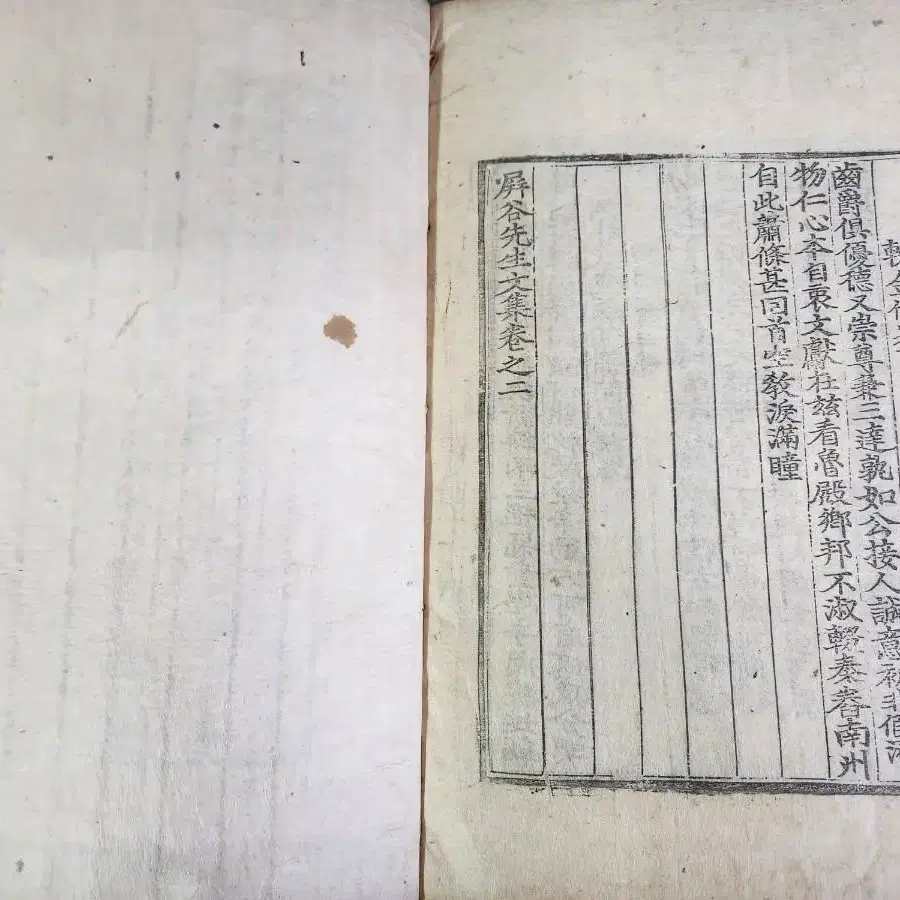 輓金
齒爵俱優德又崇尊兼三達孰如公接人誠意初非假
物仁心本自衷文獻在玆看魯殿鄉邦不淑輟秦舂南州
自此蕭條甚回首空教淚滿瞳
屛谷先生文集卷之二